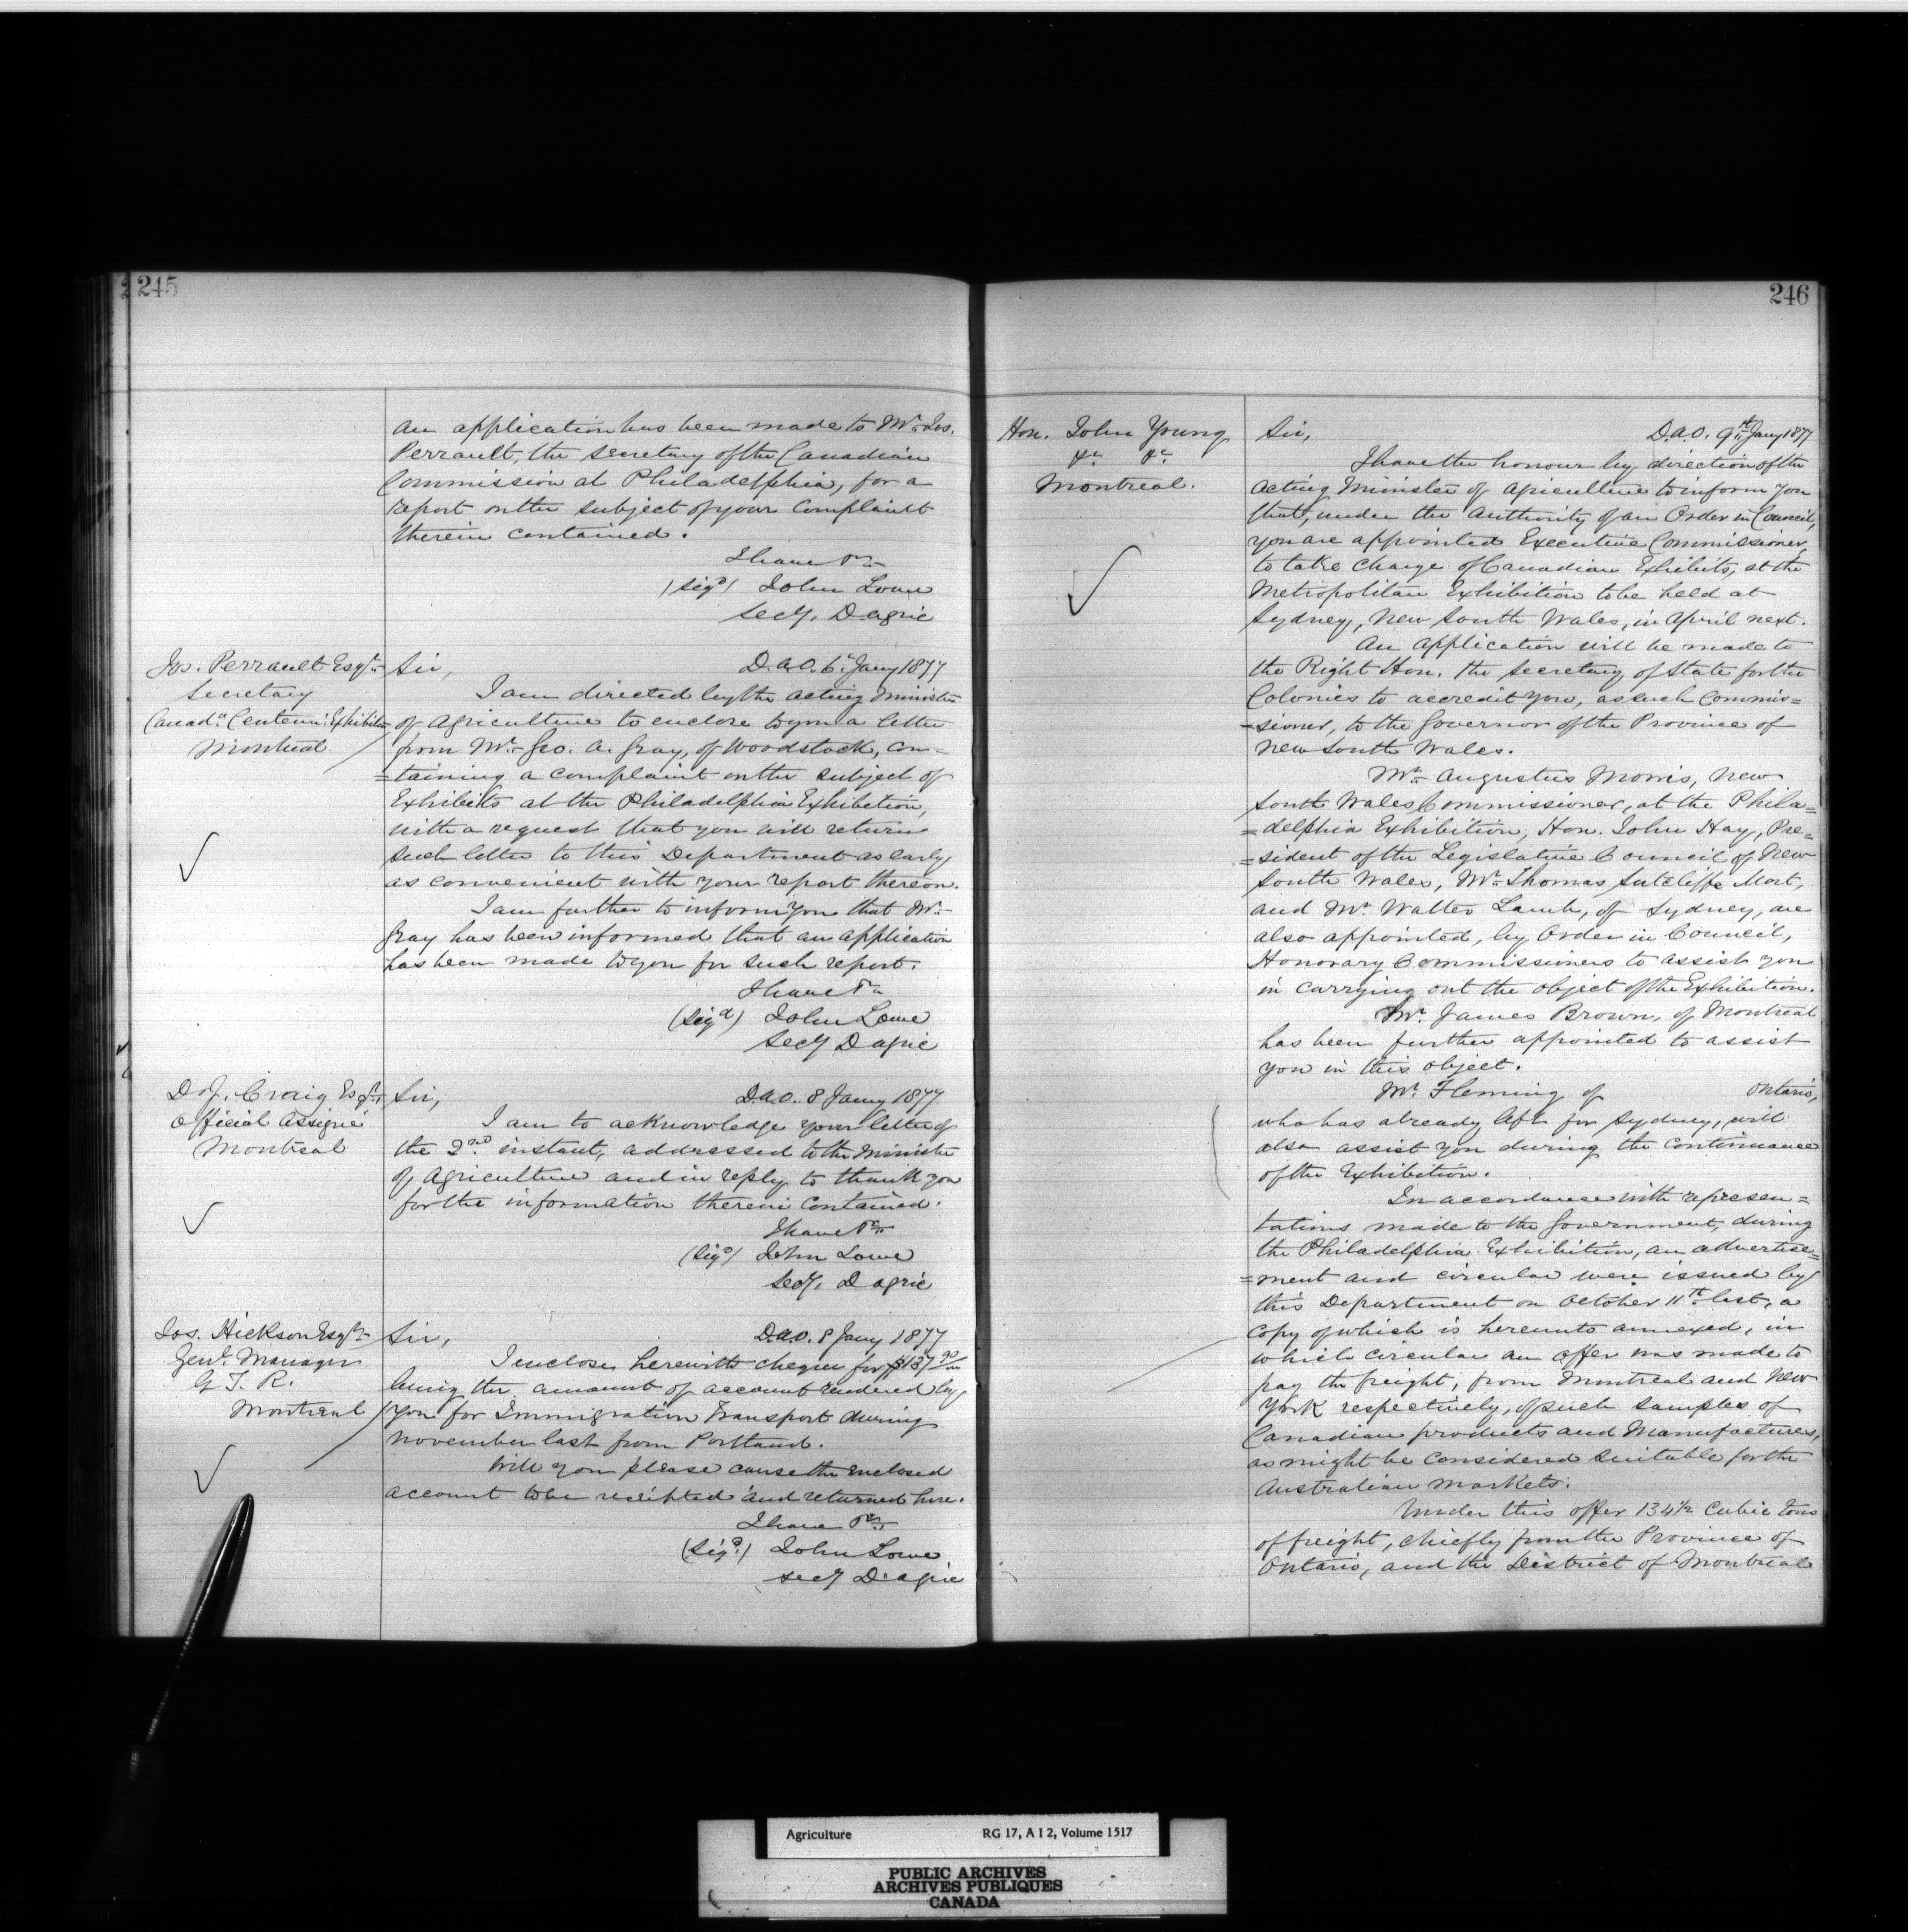 245
An application has been made to Mr. Jos.
Perrault, the Secretary of the Canadian
Commission at Philadelphia, for a
report on the subject of your Complaint
therein contained.
I have &c
(Sigd) John Lowe
Secy. D. Agric
Jos. Perrault Esqr.
Secretary
Canadn. Centenn. Exhibition
Montreal
Sir,
D.A.O. 6 Jany 1877
I am directed by the Acting Minister
of Agriculture to enclose to you a letter
from Mr. Geo. A. Gray, of Woodstock, con=
=taining a complaint on the subject of
Exhibits at the Philadelphia Exhibition,
with a request that you will return
such letter to this Department as early,
as convenient with your report thereon.
I am further to inform you that Mr.
Gray has been informed that an application
has been made to you for such report.
I have &c
(Sigd) John Lowe
Secy D Agric
D. J. Craig Esqr.
Official Assigné
Montreal
Sir,
D.A.O. 8 Jany 1877
I am to acknowledge your letter of
the 2nd. instant, addressed to the Minister
of Agriculture and in reply to thank you
for the information therein contained.
I have &c
(Sigd) John Lowe
Secy. D Agric
Jos. Hickson Esqr.
Genl. Manager
G. T. R.
Montreal
Sir,
D.A.O. 8 Jany 1877
I enclose herewith cheque for $137 90/100
being the amount of account rendered by
you for Immigration Transport during
November last from Portland.
Will you please cause the enclosed
account to be receipted and returned here.
I have &c
(Sigd.) John Lowe
Secy D. Agric
246
Hon. John Young
&c &c
Montreal.
Sir,
D.A.O. 9th Jany 1877
I have the honour by direction of the
Acting Minister of Agriculture to inform you
that, under the Authority of an Order in Council,
you are appointed Executive Commissioner,
to take charge of Canadian Exhibits, at the
Metropolitan Exhibition to be held at
Sydney, New South Wales, in April next.
An application will be made to
the Right Hon. the Secretary of State for the
Colonies to accredit you, as such Commis=
=sioner, to the Governor of the Province of
New South Wales.
Mr. Augustus Morris, New
South Wales Commissioner, at the Phila=
=delphia Exhibition, Hon. John Hay, Pre=
=sident of the Legislative Council of New
South Wales, Mr. Thomas Sutcliffe Mort,
and Mr. Walter Lamb, of Sydney, are
also appointed, by Order in Council,
Honorary Commissioners to assist you
in carrying out the object of the Exhibition.
Mr. James Brown, of Montreal
has been further appointed to assist
you in this object.
Mr. Fleming of Ontario,
who has already left for Sydney, will
also assist you during the continuance
of the Exhibition.
In accordance with represen=
tations made to the Government, during
the Philadelphia Exhibition, an advertise=
=ment and circular were issued by
this Department on October 11th. last, a
copy of which is hereunto annexed, in
which circular an offer was made to
pay the freight, from Montreal and New
York respectively, of such samples of
Canadian products and Manufactures,
as might be considered suitable for the
Australian Markets.
Under this offer 134 1/2 Cubic tons
of freight, chiefly from the Province of
Ontario, and the District of Montreal
Agriculture RG 17, A I 2, Volume 1517
PUBLIC ARCHIVES
ARCHIVES PUBLIQUES
CANADA